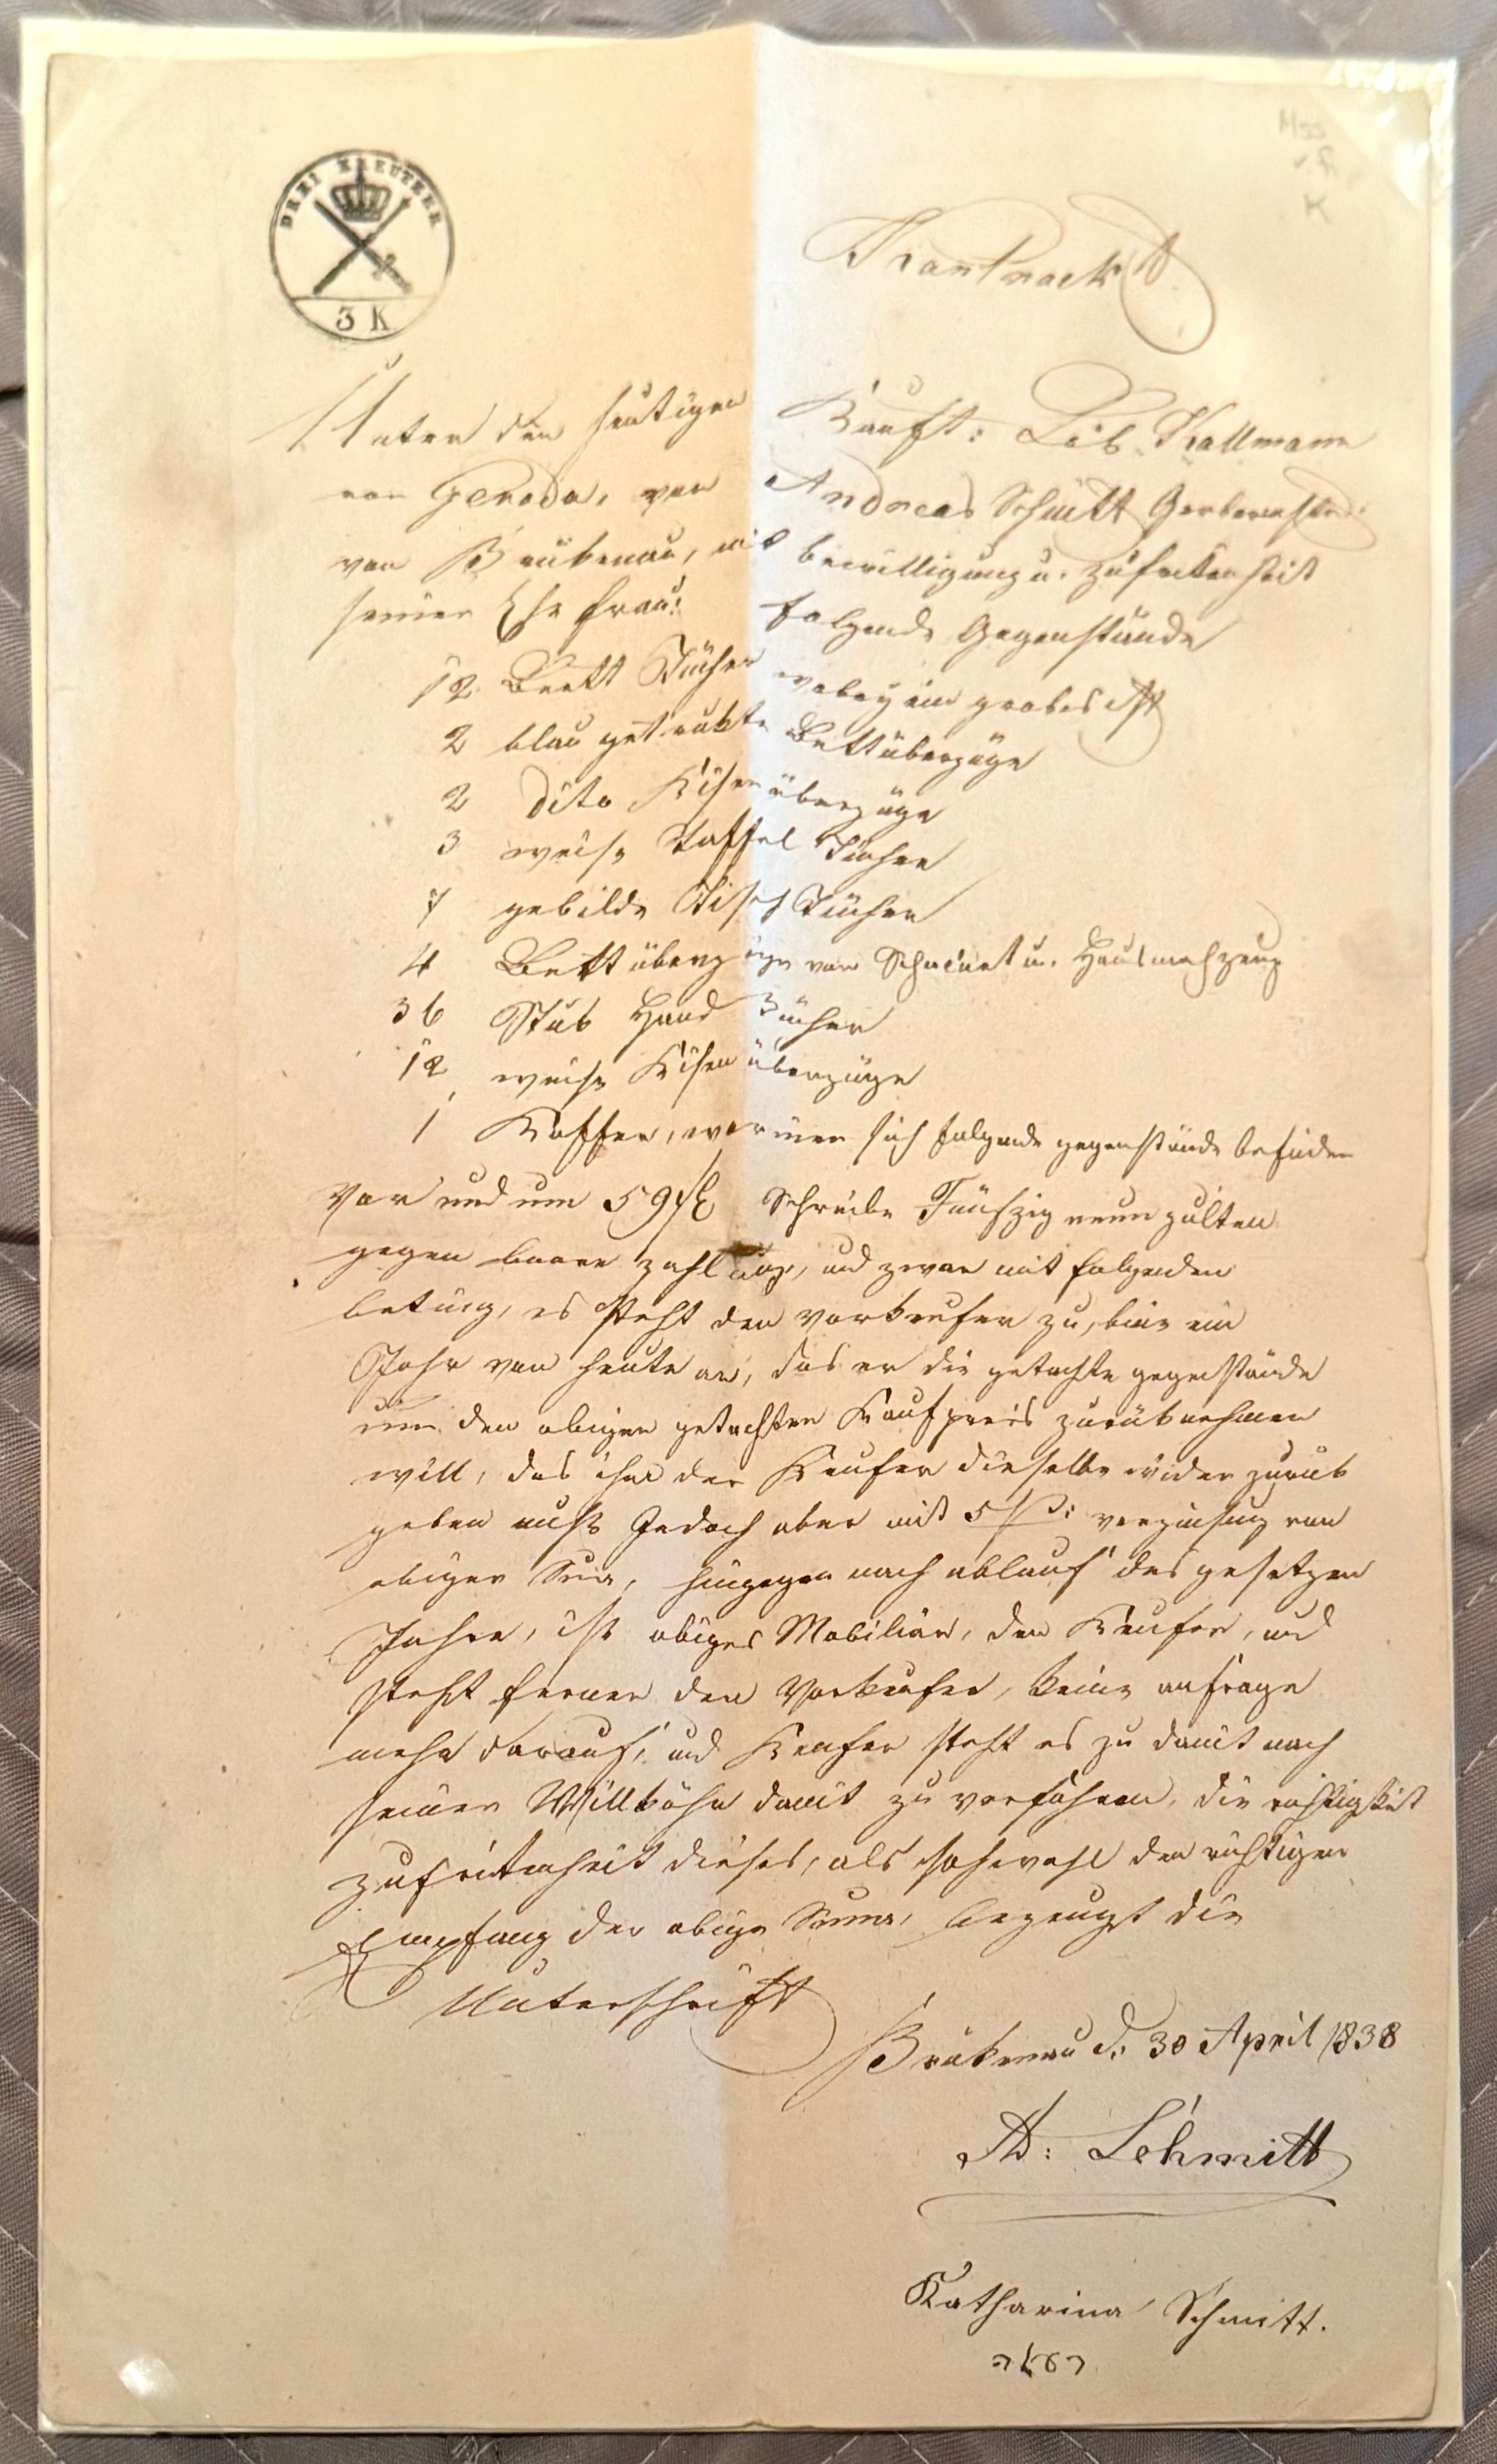 Mss
K
DREI KREUTZER
3 K
Kontrackt
Unter den heutigen Kauft: Löb Kallmann
von Geroda, von Andreas Schmitt Gerbermstr:
von Brükenau, mit bewilligung u. zufritenheit
seiner Ehefrau: folgende Gegenstände
12 Bett Tücher wobey ein grobes ist
2 blau getrukte Bettüberzüge
2 dito Kisenüberzüge
3 weise Taffel Tücher
7 gebilde Tisch Tücher
4 Bettüberzüge von u.
36 Stük Hand Tücher
12 weise Kisenüberzüge
1 Koffer, worinen sich folgende gegenstände befinden
Vor und um 59 fl Schreibe Fünfzig neun gulten
gegen baare zahlung, und zwar mit folgenden
beting, es steht den Verkeufer zu, bins ein
Jahr von heute an, das er die getachte gegenstände
um den obigen getachten Kaufpreis zurüknehmen
will, das ihm der Keufer dieselbe wider zurük
geben muß Jedoch aber mit 5 p: verzinsung von
obiger Sum, hingegen nach ablauf des gesetzen
Jahre, ist obiges Mobiliar, den Keufer, und
steht ferner den Verkeufer, keine anfrage
mehr darauf, und Keufer steht es zu damit nach
seiner Willköhr damit zu verfahren, die richtigkeit
zufritenheit dieses, als sohwohl den richtigen
Empfang der obige Summe, bezeugt die
Unterschrift
Brükenau d: 30 April 1838
A: Schmitt
Katharina Schmitt.